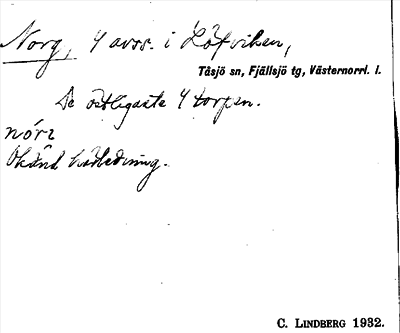 Norg, 4 avs. i Löfviken,
Tåsjö sn, Fjällsjö tg, Västernorrl. l.
De östligaste 4 torpen.
nórʒ
Okänd härledning.
C. LINDBERG 1932.